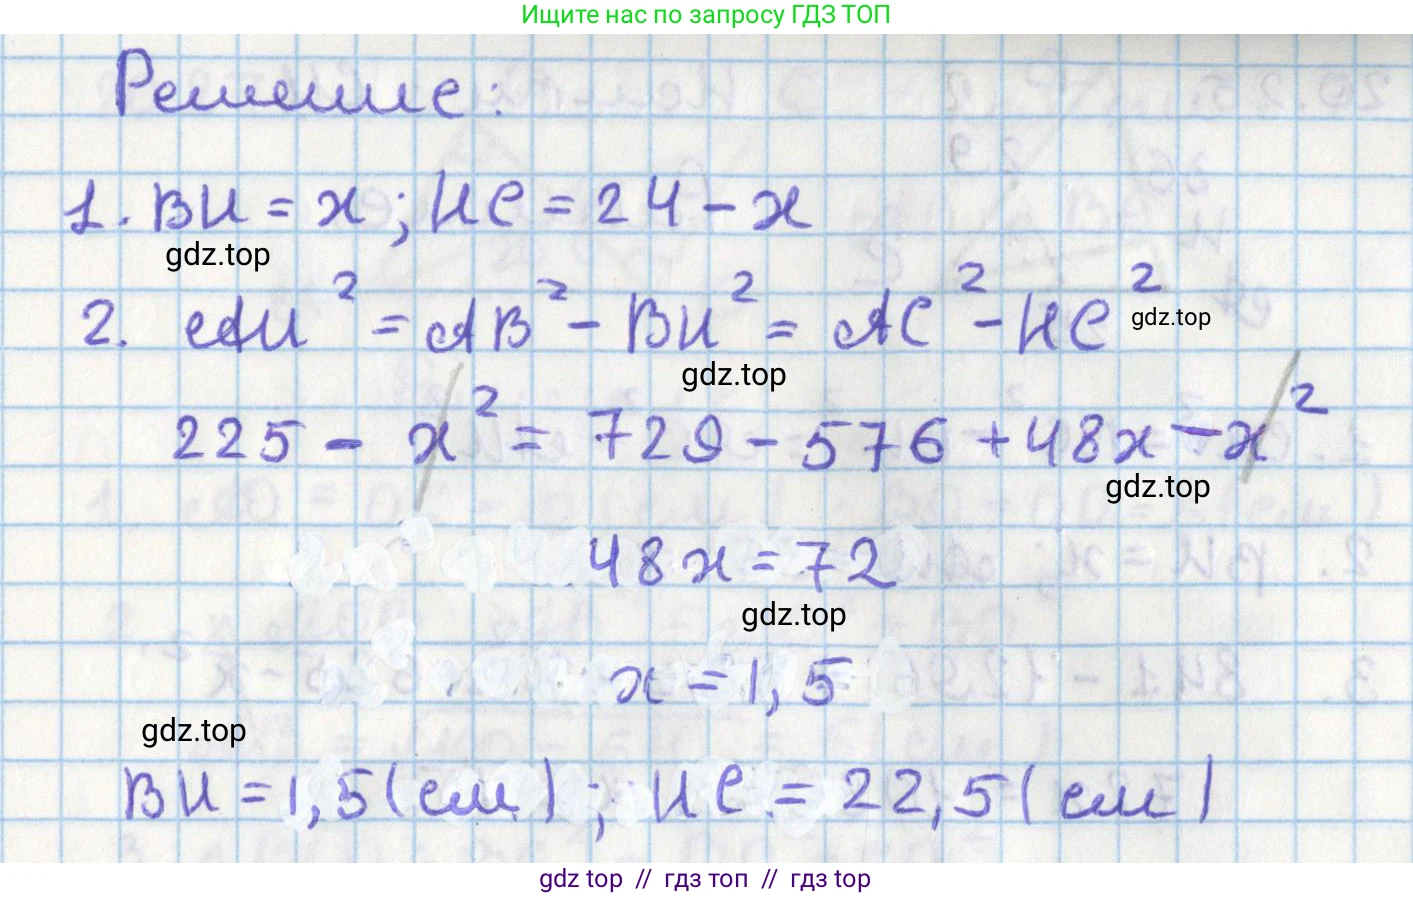 Ищите нас по запросу ГДЗ ТОП
Решение:
1. BH = x; HC = 24 - x
gdz.top
2. AH² = AB² - BH² = AC² - HC²
gdz.top
gdz.top
225 - x² = 729 - 576 + 48x - x²
gdz.top
48x = 72
gdz.top
x = 1,5
gdz.top
BH = 1,5 (см); HC = 22,5 (см)
gdz top // гдз топ // гдз top